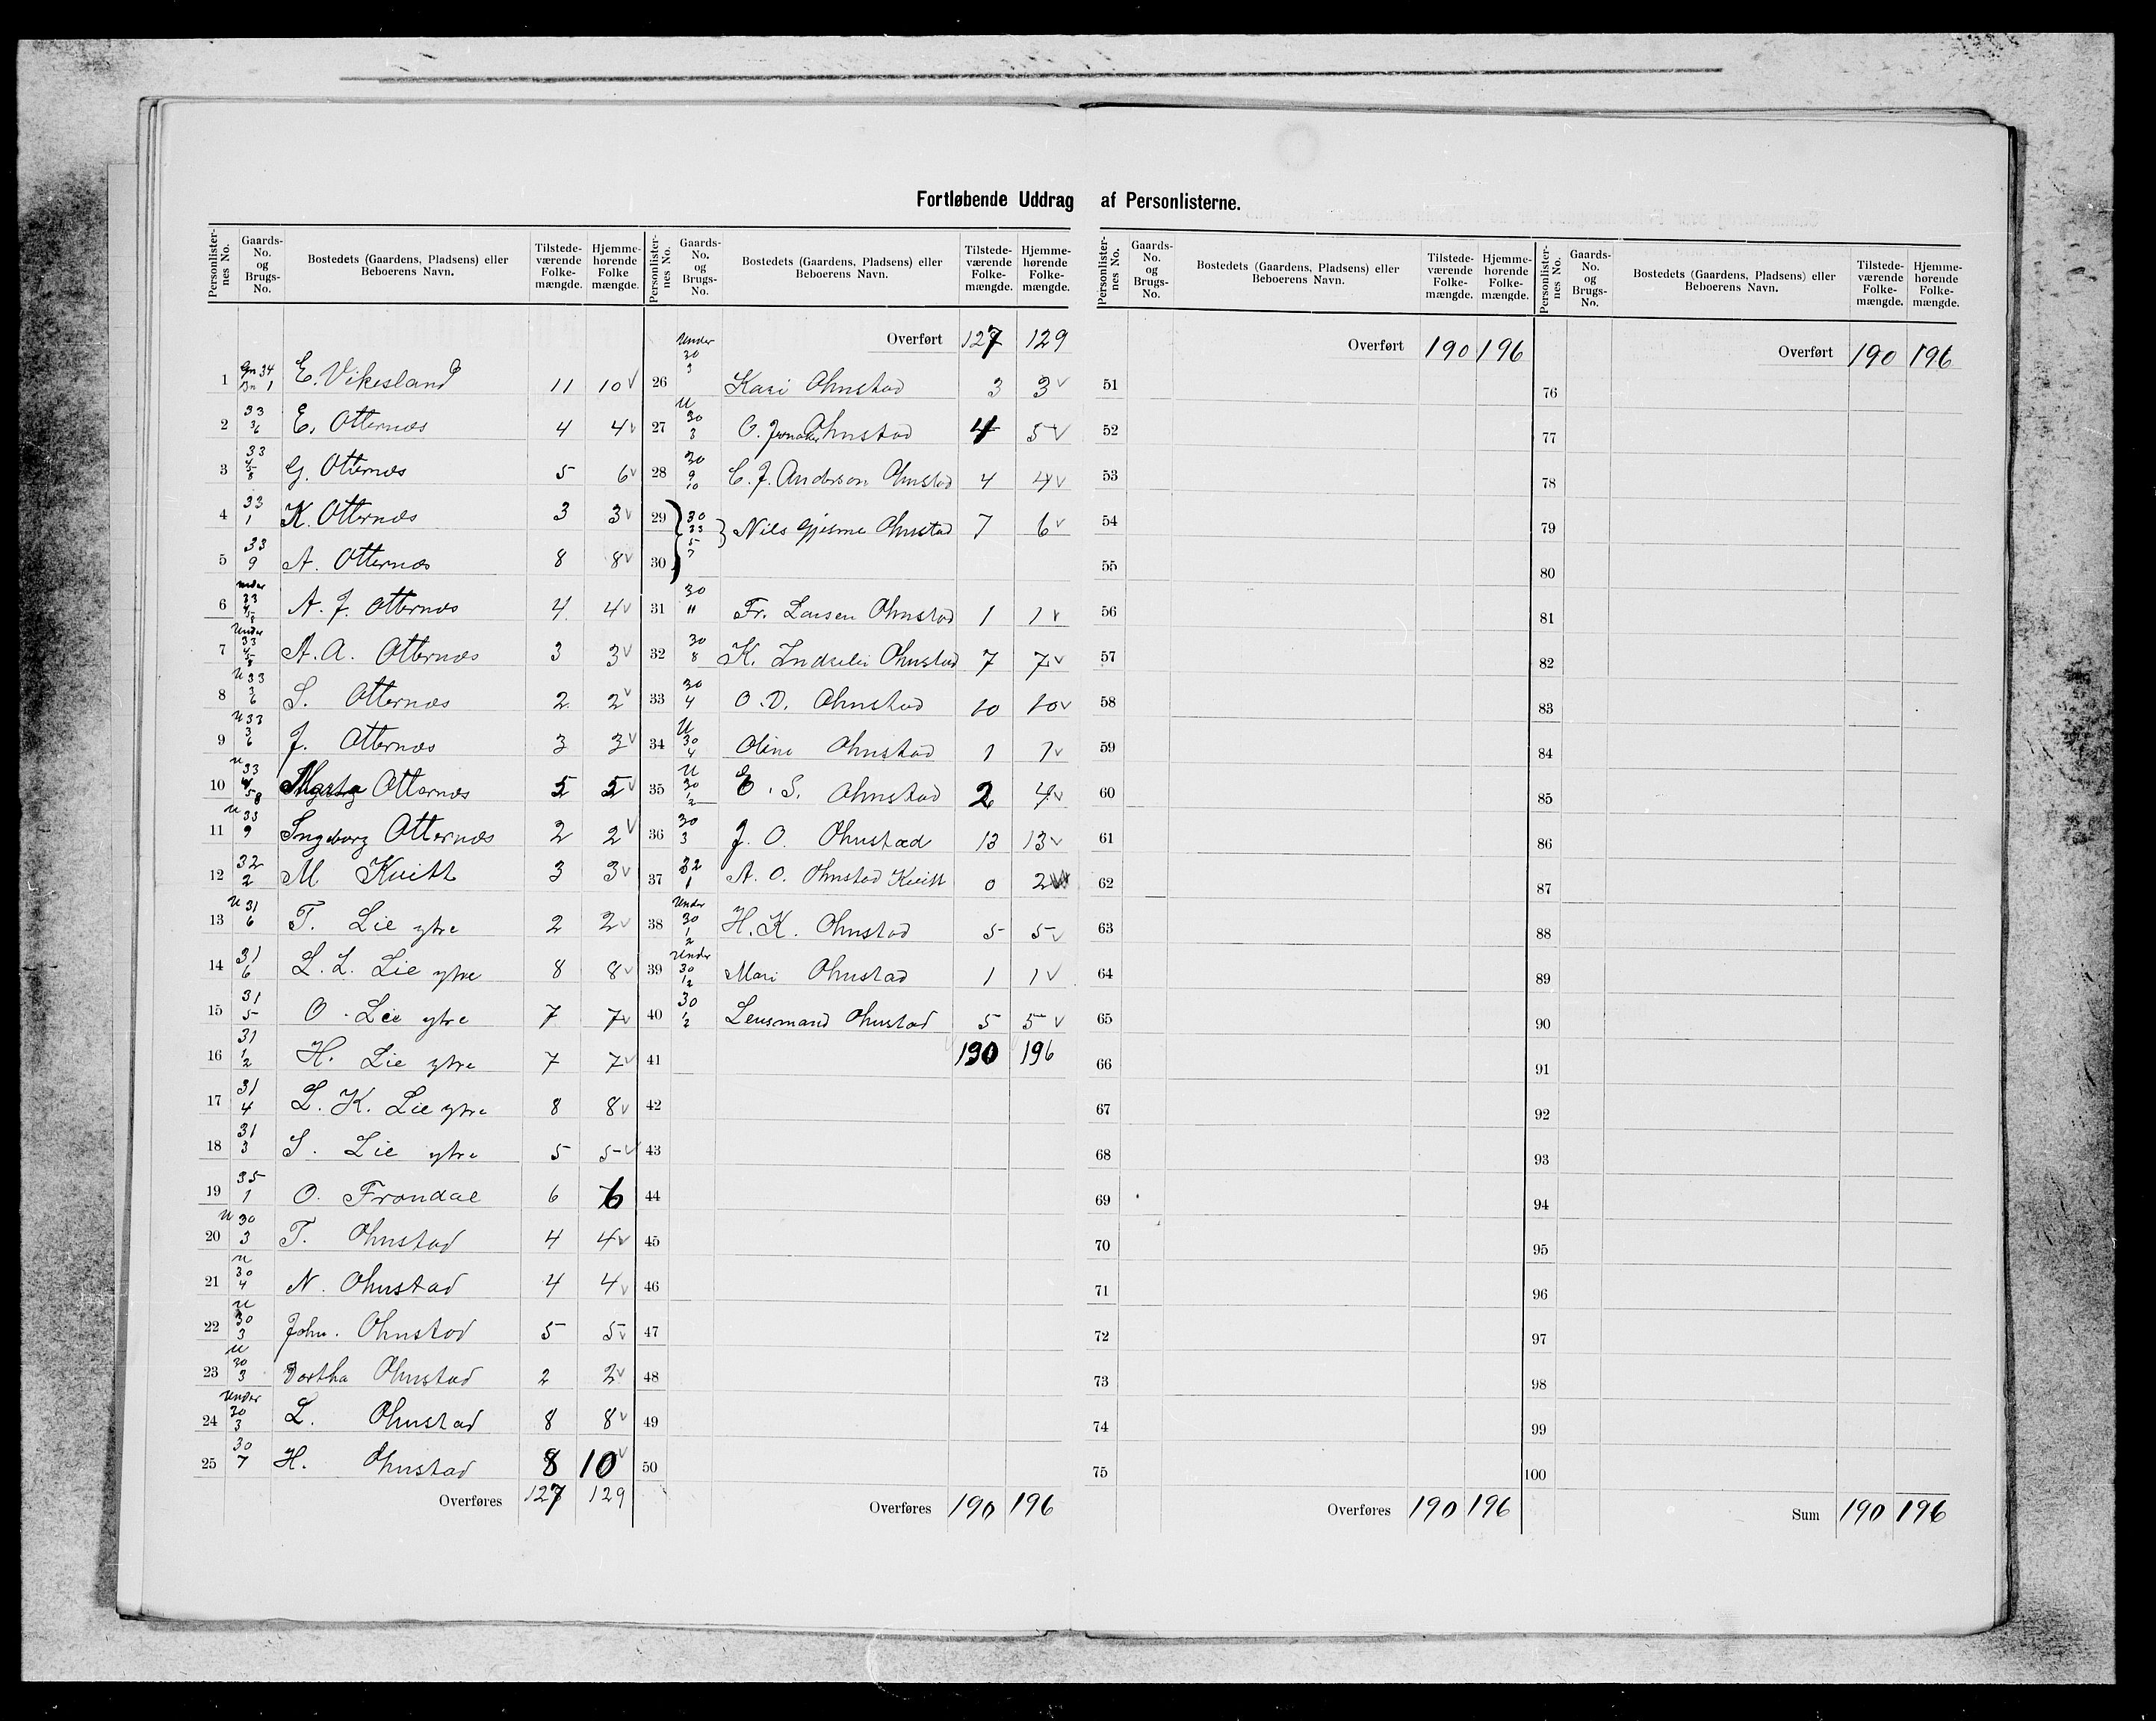 Fortløbende Uddrag af Personlisterne.
Personlister-nes No. | Gaards-No. og Brugs-No. | Bostedets (Gaardens, Pladsens) eller Beboerens Navn. | Tilstede-værende Folke-mængde. | Hjemme-hørende Folke mængde.
1 | Gn 34 Bn 1 | E. Vikesland | 11 | 10 v
2 | 33 3/6 | E. Otternæs | 4 | 4 v
3 | 33 4/5 8 | G. Otternæs | 5 | 6 v
4 | 33 1 | K. Otternæs | 3 | 3 v
5 | 33 9 | A. Otternæs | 8 | 8 v
6 | under 33 4/5 8 | A. J. Otternæs | 4 | 4 v
7 | Under 33 4/5 8 | A. A. Otternæs | 3 | 3 v
8 | U 33 3/6 | S. Otternæs | 2 | 2 v
9 | U 33 3/6 | J. Otternæs | 3 | 3 v
10 | U 33 4/5 8 | Otternæs | 5 | 5 v
11 | U 33 9 | Ingeborg Otternæs | 2 | 2 v
12 | 32 2 | M Kvitt | 3 | 3 v
13 | U 31 6 | T. Lie ytre | 2 | 2 v
14 | 31 6 | L. L. Lie ytre | 8 | 8 v
15 | 31 5 | O. Lie ytre | 7 | 7 v
16 | 31 1/2 | H. Lie ytre | 7 | 7 v
17 | 31 4 | L. K. Lie ytre | 8 | 8 v
18 | 31 3 | S. Lie ytre | 5 | 5 v
19 | 35 1 | O. Frondal | 6 | 6
20 | U 30 3 | T. Ohnstad | 4 | 4 v
21 | U 30 4 | N. Ohnstad | 4 | 4 v
22 | U 30 3 | John. Ohnstad | 5 | 5 v
23 | U 30 3 | Dortha Ohnstad | 2 | 2 v
24 | Under 30 3 | L. Ohnstad | 8 | 8 v
25 | 30 7 | H. Ohnstad | 8 | 10 v
Overføres | 127 | 129
Personlister-nes No. | Gaards-No. og Brugs-No. | Bostedets (Gaardens, Pladsens) eller Beboerens Navn. | Tilstede-værende Folke-mængde. | Hjemme-hørende Folke-mængde.
Overført | 127 | 129
26 | Under 30 3 | Kari Ohnstad | 3 | 3 v
27 | U 30 3 | O. Ohnstad | 4 | 5 v
28 | 30 9 10 | E. J. Anderson Ohnstad | 4 | 4 v
29 30 | 30 33 5 7 | Nils Gjesme Ohnstad | 7 | 6 v
31 | 30 11 | Fr. Larsen Ohnstad | 1 | 1 v
32 | 30 8 | K. Indrelie Ohnstad | 7 | 7 v
33 | 30 4 | O. D. Ohnstad | 10 | 10 v
34 | U 30 4 | Oline Ohnstad | 1 | 1 v
35 | U 30 1/2 | E. S. Ohnstad | 2 | 4 v
36 | 30 3 | J. O. Ohnstad | 13 | 13 v
37 | 32 1 | A. O. Ohnstad Kvitt | 0 | 2
38 | Under 30 1 2 | H. K. Ohnstad | 5 | 5 v
39 | Under 30 1/2 | Mari Ohnstad | 1 | 1 v
40 | 30 1/2 | Lensmand Ohnstad | 5 | 5 v
41 | 190 | 196
42
43
44
45
46
47
48
49
50
Overføres | 190 | 196
Personlister-nes No. | Gaards-No. og Brugs-No. | Bostedets (Gaardens, Pladsens) eller Beboerens Navn. | Tilstede-værende Folke-mængde. | Hjemme-hørende Folke-mængde.
Overført | 190 | 196
51
52
53
54
55
56
57
58
59
60
61
62
63
64
65
66
67
68
69
70
71
72
73
74
75
Overføres | 190 | 196
Personlister-nes No. | Gaards-No. og Brugs-No. | Bostedets (Gaardens, Pladsens) eller Beboerens Navn. | Tilstede-værende Folke-mængde. | Hjemme-hørende Folke-mængde.
Overført | 190 | 196
76
77
78
79
80
81
82
83
84
85
86
87
88
89
90
91
92
93
94
95
96
97
98
99
100
Sum | 190 | 196